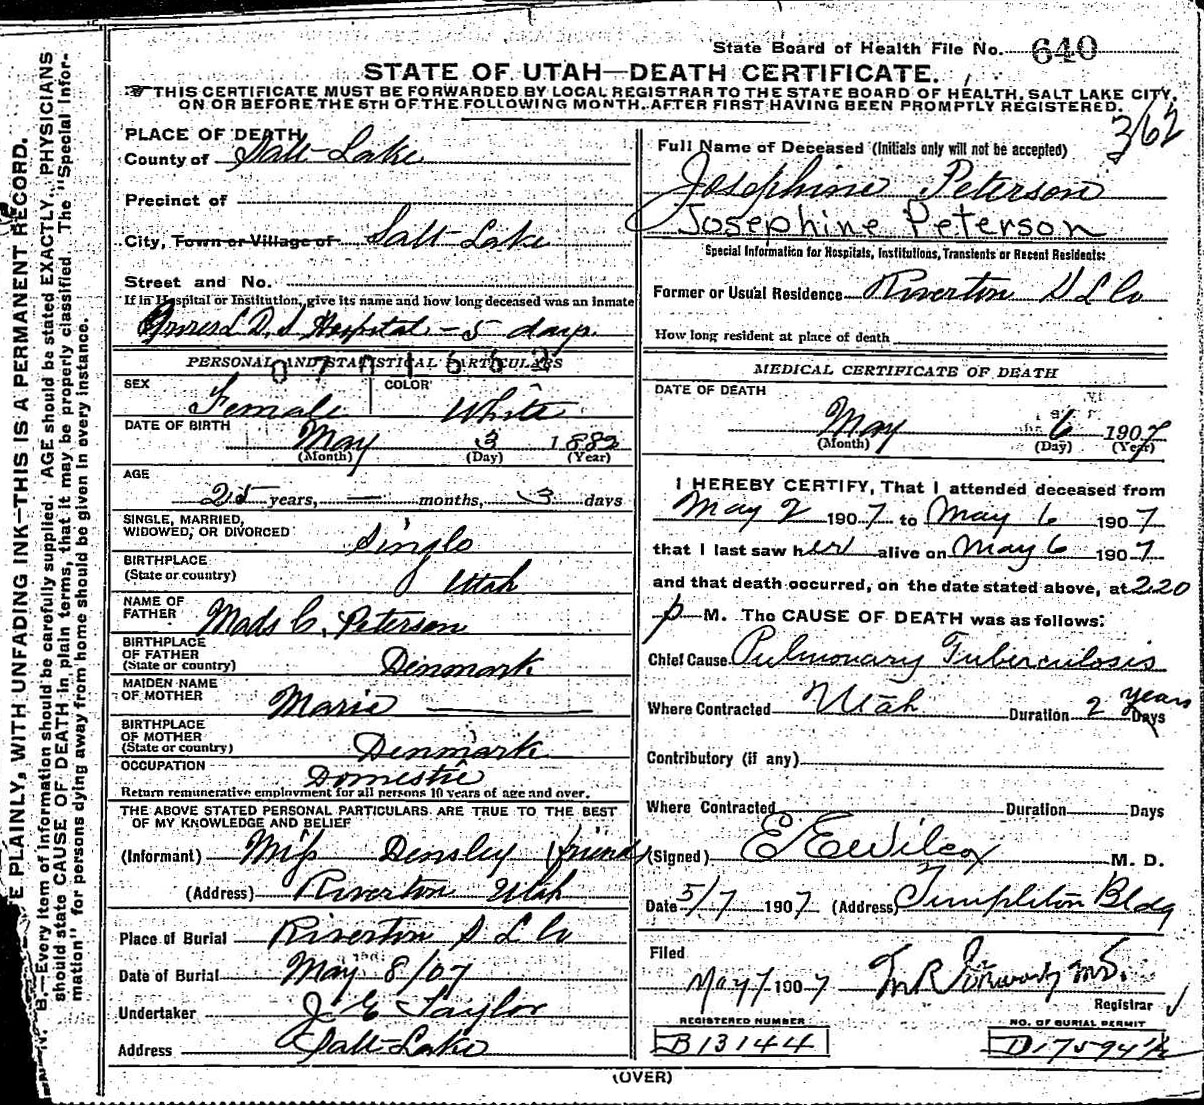 State Board of Health File No. 640
STATE OF UTAH—DEATH CERTIFICATE.
THIS CERTIFICATE MUST BE FORWARDED BY LOCAL REGISTRAR TO THE STATE BOARD OF HEALTH, SALT LAKE CITY,
ON OR BEFORE THE 5TH OF THE FOLLOWING MONTH, AFTER FIRST HAVING BEEN PROMPTLY REGISTERED.
3/62
E PLAINLY, WITH UNFADING INK—THIS IS A PERMANENT RECORD.
N. B.—Every item of information should be carefully supplied. AGE should be stated EXACTLY. PHYSICIANS
should state CAUSE OF DEATH in plain terms, that it may be properly classified. The "Special Infor-
mation" for persons dying away from home should be given in every instance.
PLACE OF DEATH
County of Salt Lake
Precinct of
City, Town or Village of Salt Lake
Street and No.
If in Hospital or Institution, give its name and how long deceased was an inmate
L D S Hospital - 5 days
PERSONAL AND STATISTICAL PARTICULARS
SEX Female
COLOR White
DATE OF BIRTH May 3 1882
(Month) (Day) (Year)
AGE
25 years, — months, 3 days
SINGLE, MARRIED,
WIDOWED, OR DIVORCED Single
BIRTHPLACE
(State or country) Utah
NAME OF
FATHER Mads C. Peterson
BIRTHPLACE
OF FATHER
(State or country) Denmark
MAIDEN NAME
OF MOTHER Marie —
BIRTHPLACE
OF MOTHER
(State or country) Denmark
OCCUPATION Domestic
Return remunerative employment for all persons 10 years of age and over.
THE ABOVE STATED PERSONAL PARTICULARS ARE TRUE TO THE BEST
OF MY KNOWLEDGE AND BELIEF
(Informant) Miss Densley (friend)
(Address) Riverton Utah
Place of Burial Riverton S L Co
Date of Burial May 8/07
Undertaker J E Taylor
Address Salt Lake
Full Name of Deceased (Initials only will not be accepted)
Josephine Peterson
Josephine Peterson
Special Information for Hospitals, Institutions, Transients or Recent Residents:
Former or Usual Residence Riverton S L Co
How long resident at place of death
MEDICAL CERTIFICATE OF DEATH
DATE OF DEATH
May 6 1907
(Month) (Day) (Year)
I HEREBY CERTIFY, That I attended deceased from
May 2 1907 to May 6 1907
that I last saw her alive on May 6 1907
and that death occurred, on the date stated above, at 2.20
p M. The CAUSE OF DEATH was as follows:
Chief Cause Pulmonary Tuberculosis
Where Contracted Utah Duration 2 years Days
Contributory (if any)
Where Contracted Duration Days
(Signed) E E Wilcox M. D.
Date 5/7 1907 (Address) Templeton Bldg
Filed
May 7/ 1907
Registrar
REGISTERED NUMBER
B13144
NO. OF BURIAL PERMIT
(OVER)